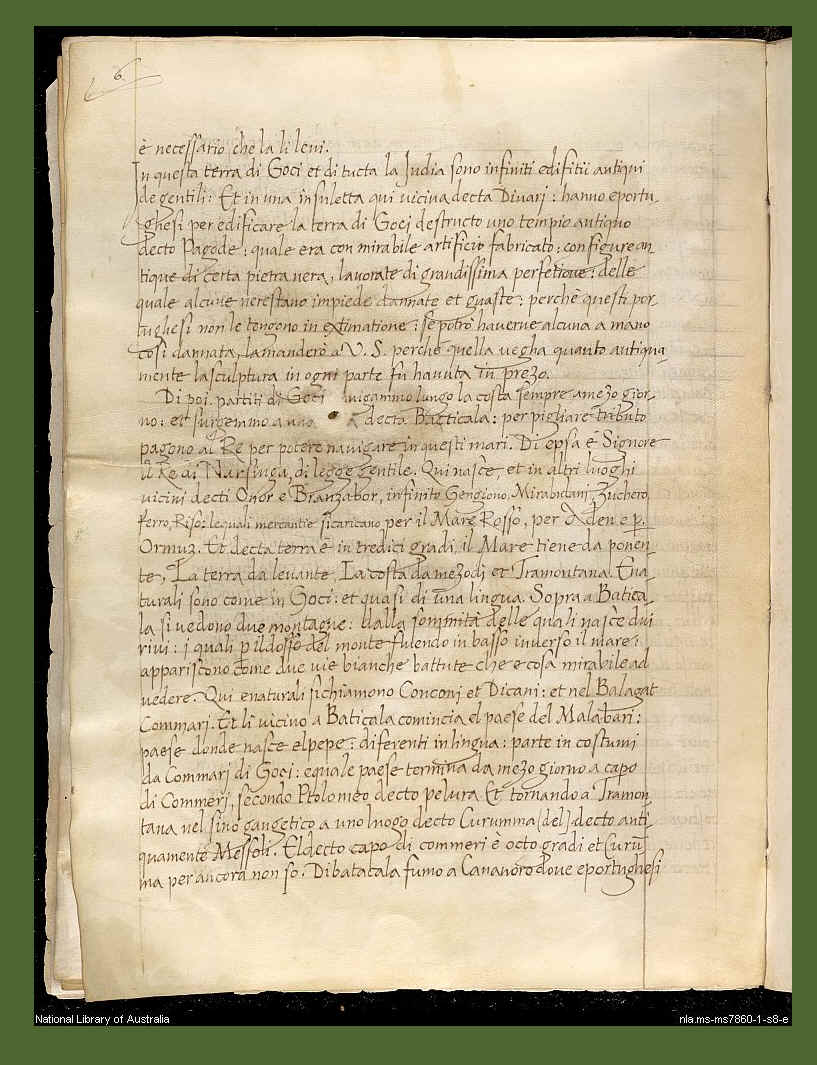 6
è necessario che la li levi.
In questa terra di Goci et di tucta la Judia sono infiniti edifitii antiqui
de gentili: Et in una insuletta qui vicina decta Divari: hanno eportu-
ghesi per edificare la terra di Goci destructo uno tempio antiquo
decto Pagode: quale era con mirabile artificio fabricato: con figure an
tique di certa pietra nera, lavorate di grandissima perfetione: delle
quale alcune nerestano impiede dannate et guaste: perchè questi por
tughesi non le tengono in extimatione: se potrò haverne alcuna a mano
così dannata, lamanderò a V. S. perchè quella vegha quanto antiqua
mente la sculptura in ogni parte fu havuta in prezo.
Di poi partiti di Goci navigammo lungo la costa sempre amezo gior-
no: et surgemmo a una decta Batticala: per pigliare tributo
pagono al Re per potere navigare in questi mari. Di epsa è Signore
il Re di Narsinga, di legge gentile. Qui nasce, et in altri luoghi
vicini decti Onor e Branzabor, infinito Gengiovo, Mirabulani, Zuchero,
ferro, Riso: lequali mercantie sicaricano per il Mare Rosso, per Aden e p.
Ormuz. Et decta terra è in tredici gradi, il Mare tiene da ponen
te, La terra da levante, La costa da mezodi et Tramontana. Ena
turali sono come in Goci: et quasi di una lingua. Sopra a Batica
la si vedono due montagne: dalla sommità delle quali nasce dui
rivi: i quali p il dosso del monte fluendo in basso inverso il mare:
appariscono come due vie bianche battute che e cosa mirabile ad
vedere. Qui enaturali sichiamono Conconj et Dicani: et nel Balagat
Commari. Et lì vicino a Baticala comincia el paese del Malabari:
paese donde nasce el pepe: diferenti in lingua: parte in costumi
da Commarj di Goci: equale paese termina da mezo giorno a capo
di Commeri, secondo Ptolomeo decto pelura Et tornando a Tramon
tana nel sino gangetico a uno luogo decto Curumma [del] decto anti
quamente Messoli. El decto capo di commeri è octo gradi et Curū
ma per ancora non so. Dibatacala fumo a Cananoro dove eportughesi
National Library of Australia
nla.ms-ms7860-1-s8-e